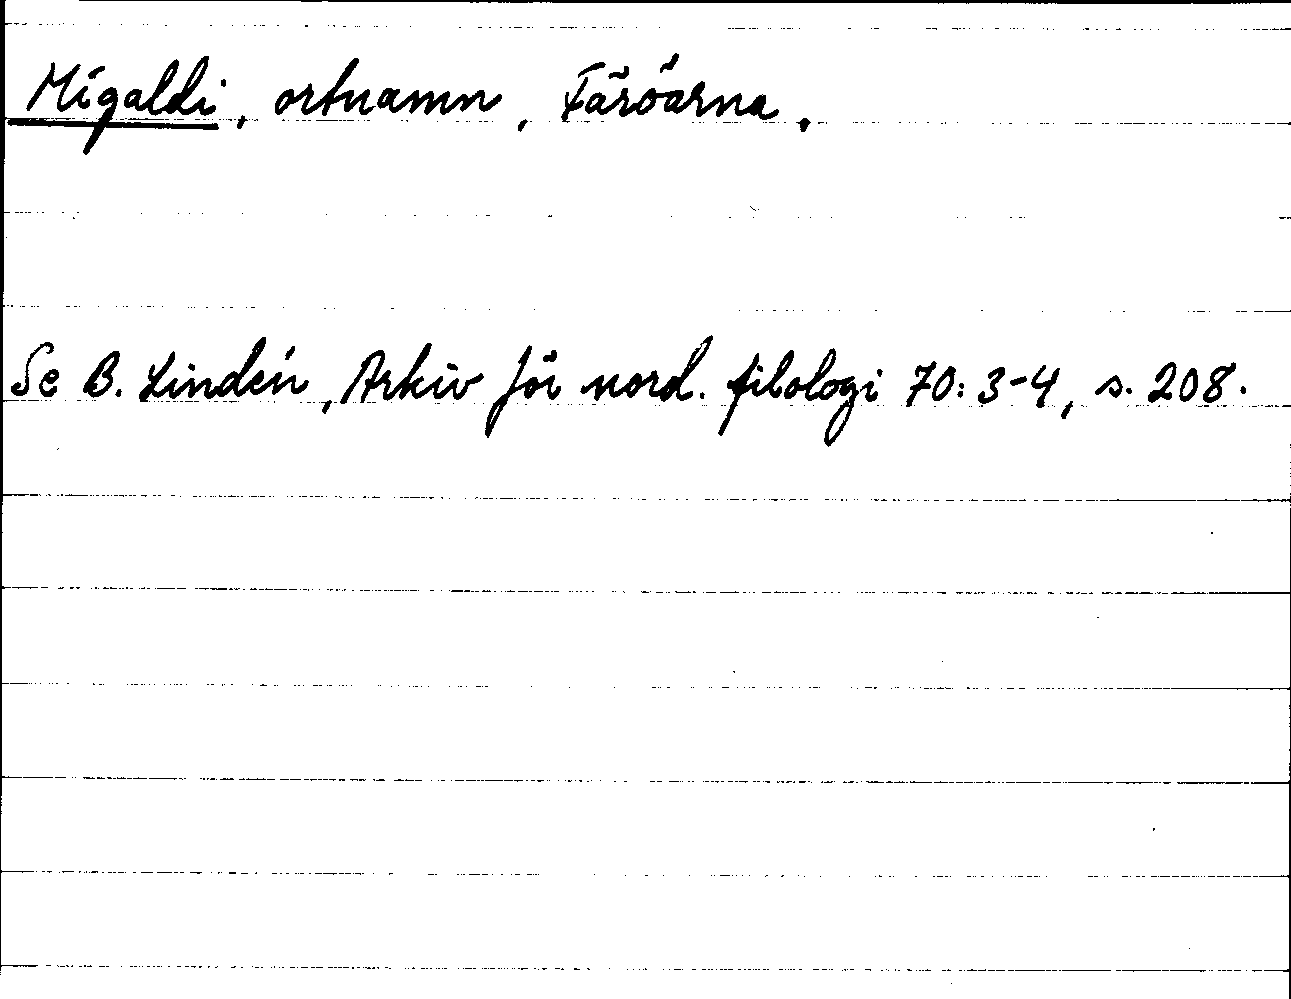 Mígaldi, ortnamn, Färöarna.
Se B. Lindén, Arkiv för nord. filologi 70: 3-4, s. 208.